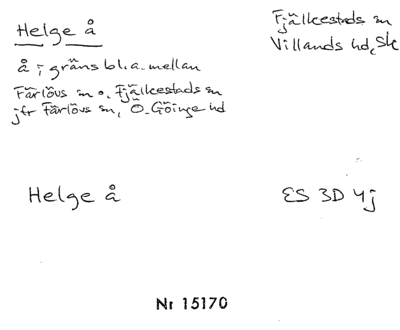 Helge å
Fjälkestads sn
Villands hd, Sk
å; gräns bl.a. mellan
Färlövs sn o. Fjälkestads sn
jfr Färlövs sn, Ö. Göinge hd
Helge å
ES 3D 4j
Nr 15170